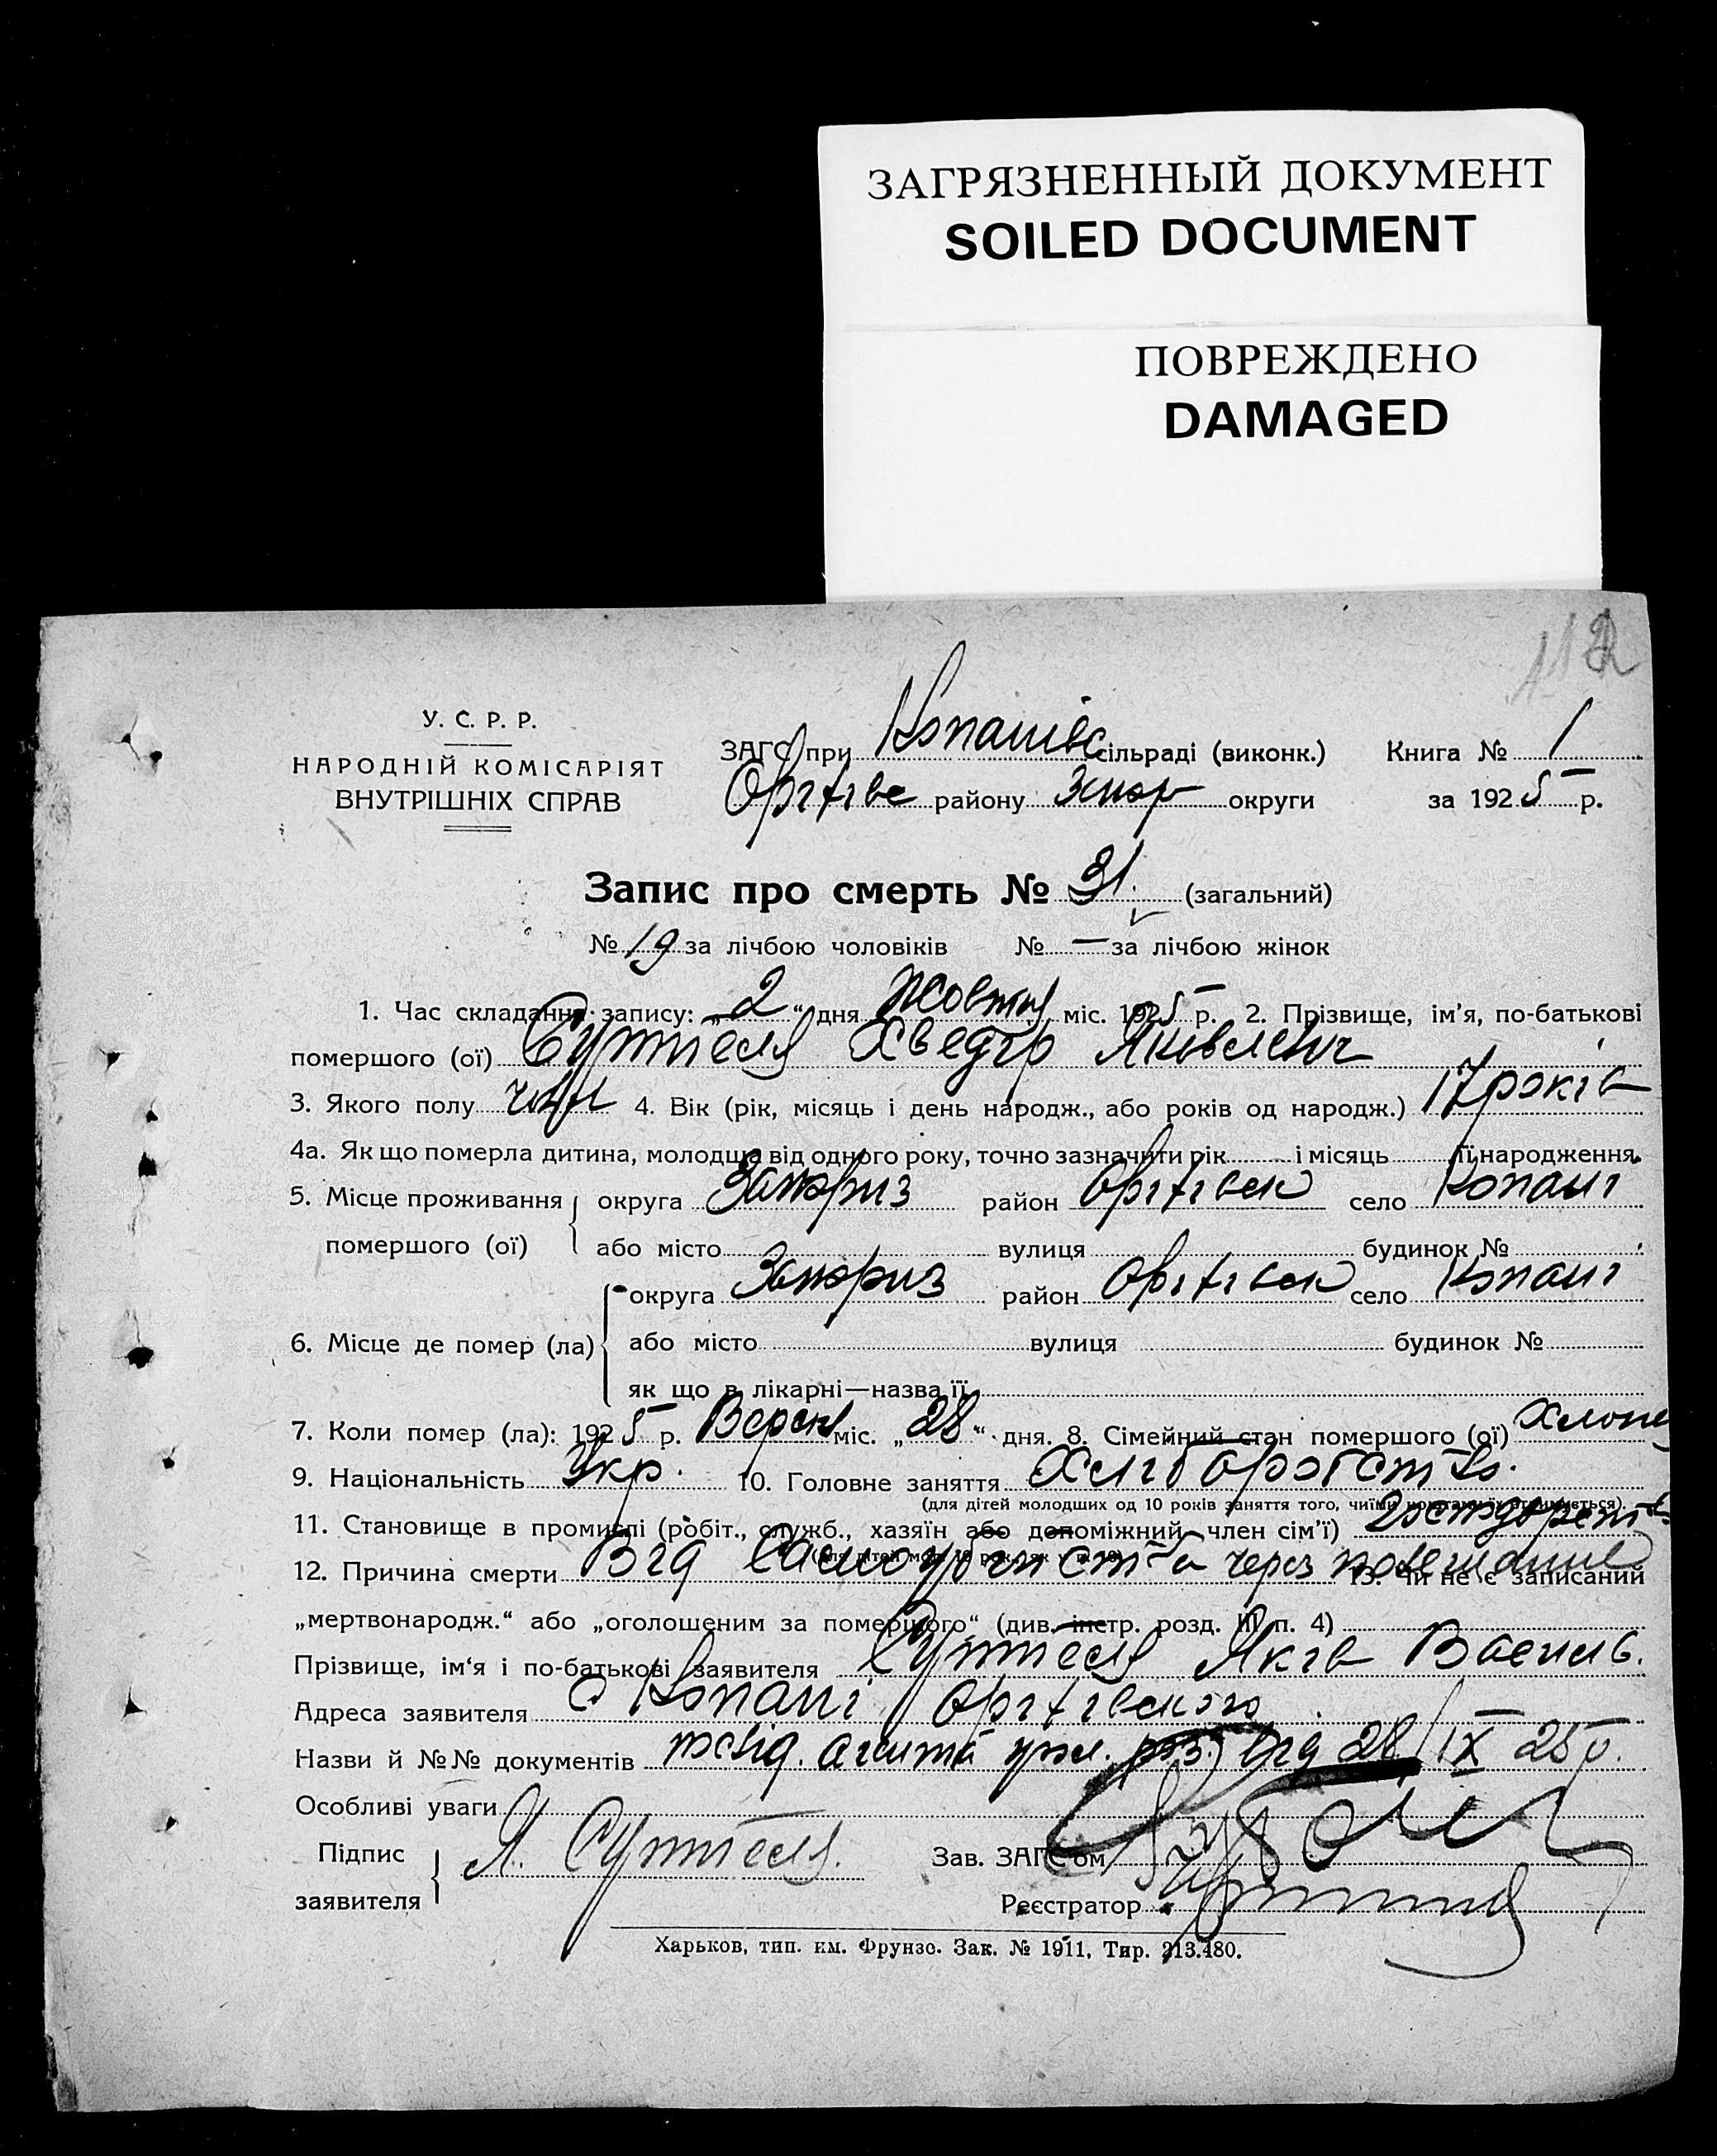 ЗАГРЯЗНЕННЫЙ ДОКУМЕНТ
SOILED DOCUMENT
ПОВРЕЖДЕНО
DAMAGED
112
У. С. Р. Р.
НАРОДНІЙ КОМІСАРІЯТ
ВНУТРІШНІХ СПРАВ
ЗАГС при Копанівс сільраді (виконк.) Книга № 1
Оріхівс району Запор округи за 1925 р.
Запис про смерть № 31. (загальний)
№ 19 за лічбою чоловіків № — за лічбою жінок
1. Час складання запису: „2“ дня Жовтня міс. 1925 р. 2. Прізвище, ім’я, по-батькові
помершого (ої) Суптеля Хведір Яковлевич
3. Якого полу чол 4. Вік (рік, місяць і день народж., або років од народж.) 17 років
4а. Як що померла дитина, молодша від одного року, точно зазначити рік і місяць її народження.
5. Місце проживання округа Запориз район Оріхівськ село Копані
помершого (ої) або місто вулиця будинок №
округа Запориз район Оріхівськ село Копані
6. Місце де помер (ла) або місто вулиця будинок №
як що в лікарні—назва її
7. Коли помер (ла): 1925 р. Вересня міс. „28“ дня. 8. Сімейний стан помершого (ої) Хлопец
9. Національність Укр. 10. Головне заняття Хліборобство.
(для дітей молодших од 10 років заняття того, чиїми коштами їх утримується).
11. Становище в промислі (робіт., служб., хазяїн або допоміжний член сім’ї)
(для дітей мол. 10 рок. як у п. 10)
12. Причина смерти Від Самоубивства через повешание 13. Чи не є записаний
„мертвонародж.“ або „оголошеним за помершого“ (див. інстр. розд. III п. 4)
Прізвище, ім‘я і по-батькові заявителя Суптеля Яків Василь.
Адреса заявителя с Копані Оріхівського
Назви й №№ документів від 28/IX 25 р.
Особливі уваги
Підпис
заявителя Я. Суптеля.
Зав. ЗАГС‘ом
Реєстратор
Харьков, тип. им. Фрунзе. Зак. № 1911, Тир. 213.480.